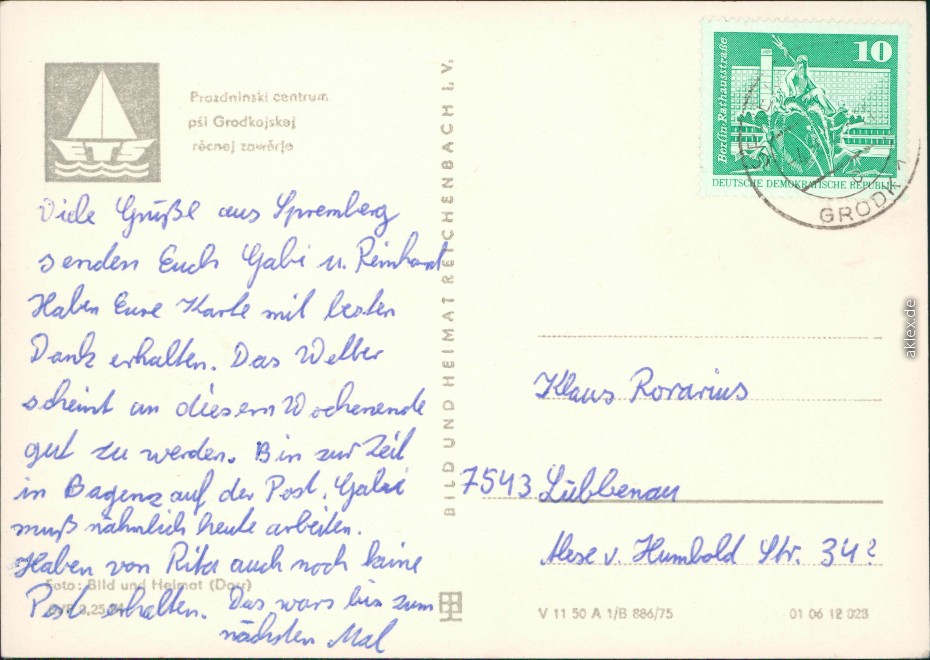 ETS
Prozdninski centrum
pśi Grodkojskej
rěcnej zawěrje
Viele Grüße aus Spremberg
senden Euch Gabi u. Reinhardt
Haben Eure Karte mit besten
Dank erhalten. Das Wetter
scheint an diesem Wochenende
gut zu werden. Bin zur Zeit
in Bagenz auf der Post. Gabi
muß nähmlich heute arbeiten.
Haben von Rita auch noch keine
Post erhalten. Das wars bis zum
nächsten Mal
Foto: Bild und Heimat (Dorr)
BILD UND HEIMAT REICHENBACH i. V.
10
Berlin-Rathausstraße
DEUTSCHE DEMOKRATISCHE REPUBLIK
GRODK
Klaus Rorarius
7543 Lübbenau
Alex v. Humbold Str. 34?
V 11 50 A 1/B 886/75
01 06 12 023
aklex.de